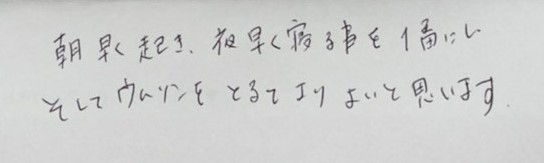 朝早く起き、夜早く寝る事を1番にし
そして をとるとよりよいと思います。